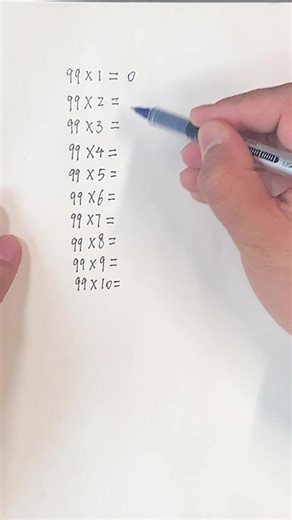 99 × 1 = 0
99 × 2 =
99 × 3 =
99 × 4 =
99 × 5 =
99 × 6 =
99 × 7 =
99 × 8 =
99 × 9 =
99 × 10 =